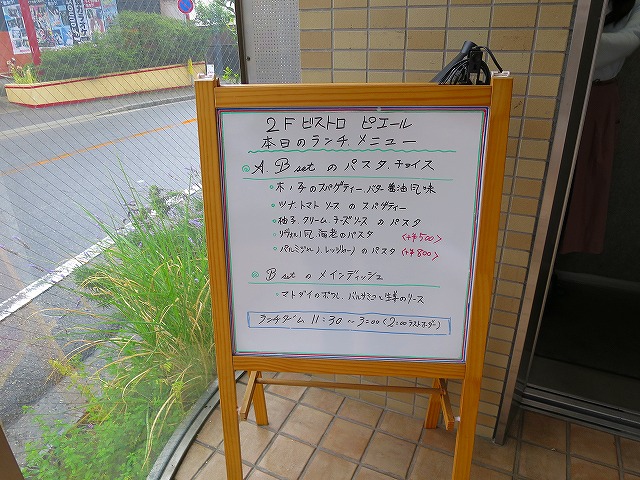 2F ビストロ ピエール
本日のランチ.メニュー
◎A.B set の パスタ.チョイス
・木ノ子のスパゲティー.バター醤油風味
・ツナ.トマト ソース の スパゲティー
・柚子.クリーム.チーズソース の パスタ
風.海老のパスタ (+¥500)
・パルミジャーノ.レッジャーノ の パスタ (+¥800)
◎B set の メインディッシュ
・マトダイのポワレ.バルサミコと生姜のソース
ランチタイム 11:30 ~ 3:00 (2:00 ラストオーダー)